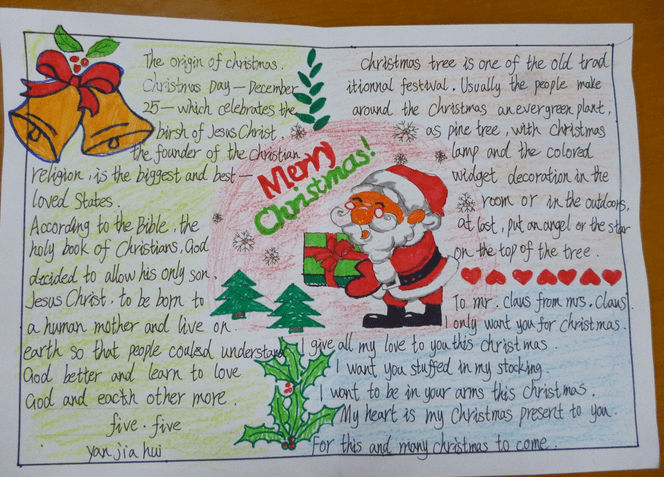 The origin of christmas.
Christmas Day — December
25 — which celebrates the
birsh of Jesus Christ,
the founder of the Christian
religion, is the biggest and best —
loved States.
According to the Bible, the
holy book of Christians, God
decided to allow his only son.
Jesus Christ. to be born to
a human mother and live on
earth so that people could understand
God better and learn to love
God and eacth other more.
five. five
yan jia hui
Merry
Christmas!
christmas tree is one of the old trad
itionnal festival. Usually the people make
around the Christmas an evergreen plant,
as pine tree, with christmas
lamp and the colored
widget decoration in the
room or in the outdoors,
at last, put an angel or the star
on the top of the tree.
To mr. claus from mrs. claus.
I only want you for christmas.
I give all my love to you this christmas.
I want you stuffed in my stocking.
I want to be in your arms this christmas.
My heart is my Christmas present to you.
for this and many christmas to come.